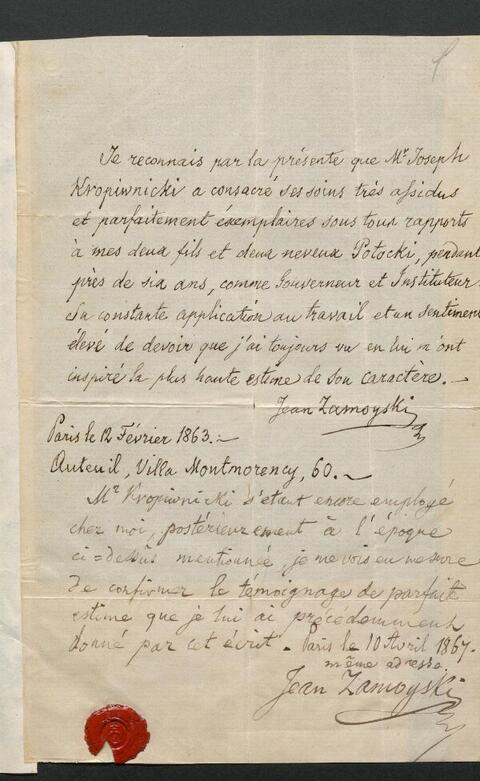 Je reconnais par la présente que Mr Joseph
Kropiwnicki a consacré ses soins très assidus
et parfaitement exemplaires sous tous rapports
à mes deux fils et deux neveux Potocki, pendant
près de six ans, comme Gouverneur et Instituteur.
Sa constante application au travail et un sentiment
élevé de devoir que j'ai toujours vu en lui m'ont
inspiré la plus haute estime de son caractère. —
Jean Zamoyski
Paris le 12 Février 1863. —
Auteuil, Villa Montmorency, 60. —
Mr Kropiwnicki s'étant encore employé
chez moi, postérieurement à l'époque
ci=dessus mentionnée, je me vois en mesure
de confirmer le témoignage de parfaite
estime que je lui ai précédemment
donné par cet écrit. Paris le 10 Avril 1867.
même adresse.
Jean Zamoyski